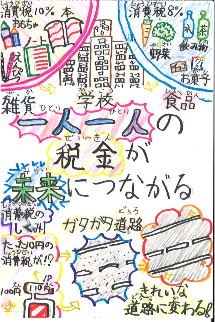 消費税10%
本
おもちゃ
えんぴつ
雑貨
学校
消費税8%
野菜
飲み物
お菓子
食品
一人一人の
ひとり ひとり
税金が
ぜいきん
未来につながる
みらい
消費税の
しくみ
たった10円の
消費税が!!
100円
110円
ガタガタ道路
きれいな
道路に変わる!